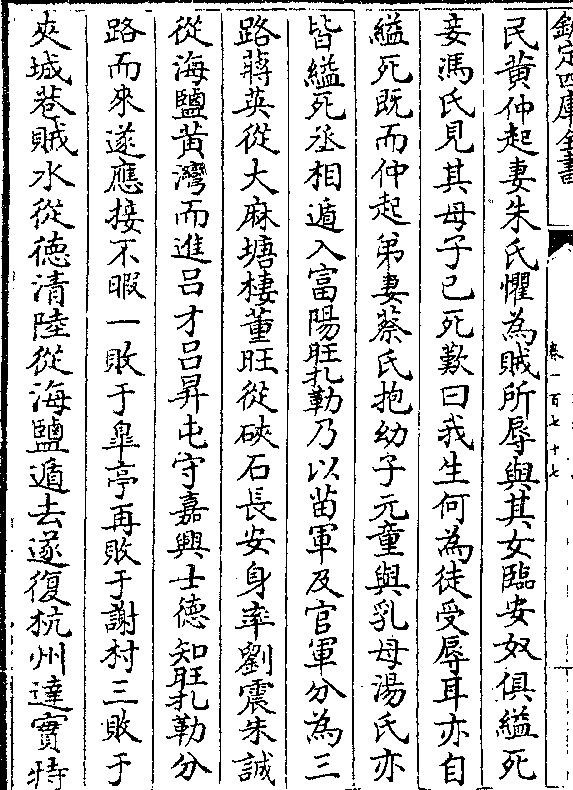 欽定四庫全書
卷一百七十七
民黃仲起妻朱氏懼為賊所辱與其女臨安奴俱縊死
妾馮氏見其母子已死歎曰我生何為徒受辱耳亦自
縊死既而仲起弟妻蔡氏抱幼子元童與乳母湯氏亦
皆縊死丞相遁入富陽旺扎勒乃以苗軍及官軍分為三
路蔣英從大麻塘棲董旺從硤石長安身率劉震朱誠
從海鹽黃灣而進呂才呂昇屯守嘉興士德知旺扎勒分
路而來遂應接不暇一敗于臯亭再敗于謝村三敗于
夾城巷賊水從德清陸從海鹽遁去遂復杭州達實特